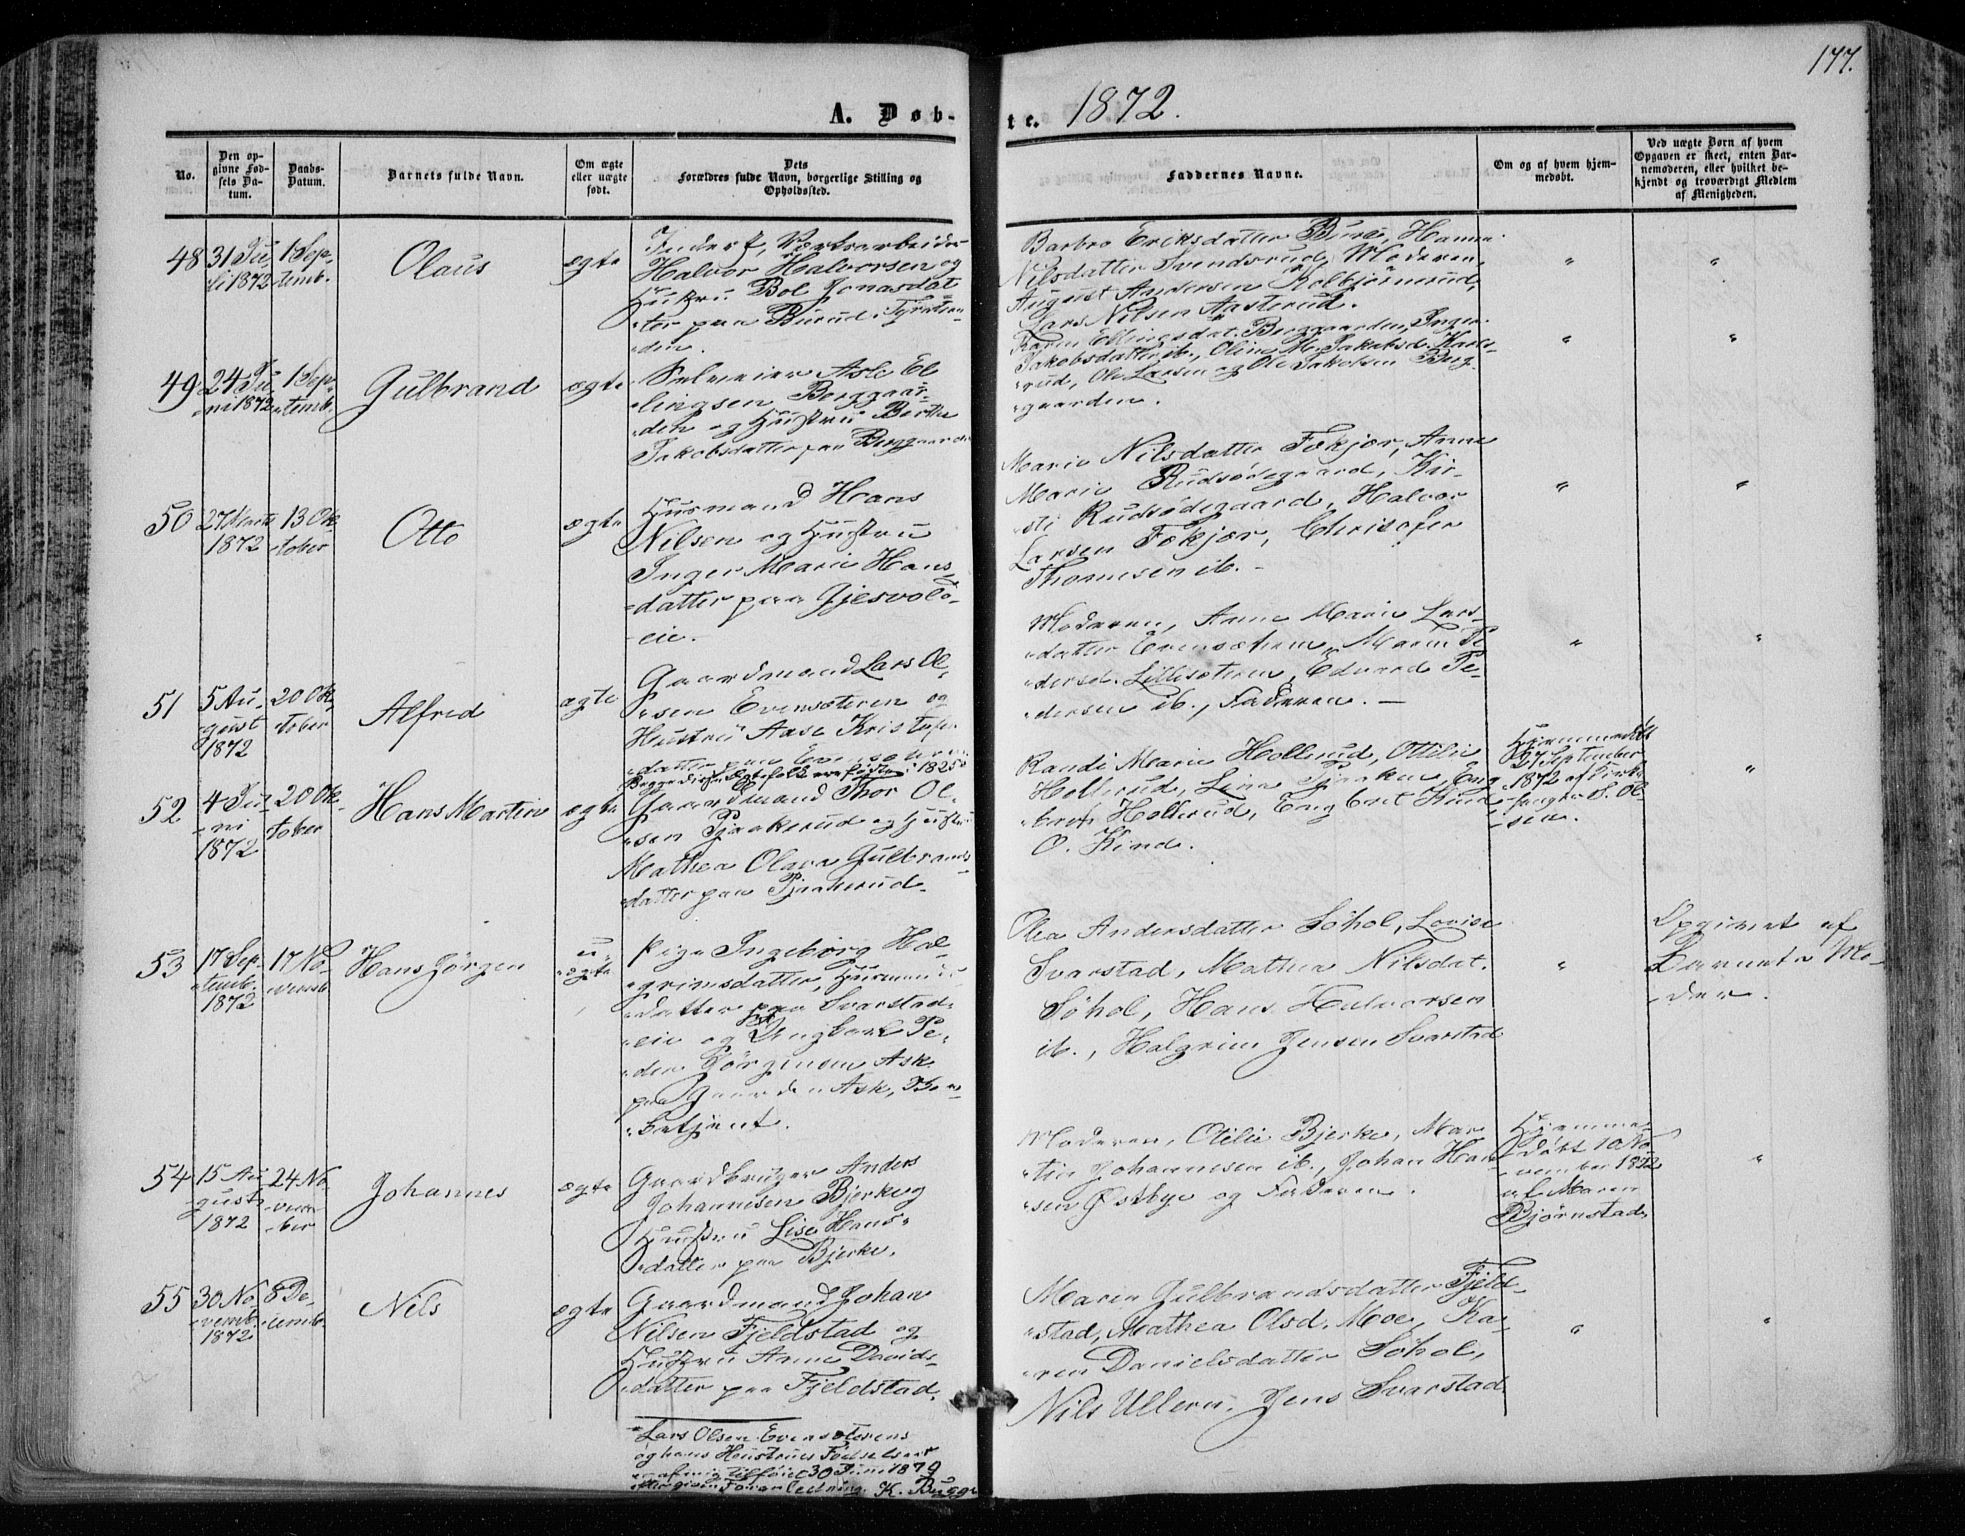 177.
A. Døb-
te. 1872.
No.
Den op-
givne Fød-
sels Da-
tum.
Daabs-
Datum.
Barnets fulde Navn.
Om ægte
eller uægte
født.
Dets
Forældres fulde Navn, borgerlige Stilling og
Opholdssted.
Faddernes Navne.
Om og af hvem hjem-
medøbt.
Ved uægte Børn af hvem
Opgaven er skeet, enten Bar-
nemoderen, eller hvilket be-
kjendt og troværdigt Medlem
af Menigheden.
48
31 Ju
li 1872
1 Sep-
temb.
Olaus
ægte
Inderst,
Halvor Halvorsen og
Hustru Bol Jonasdat
ter paa Burud i Tyristran
den.
Barbro Eriksdatter Burud, Hanna
Nilsdatter Svendsrud, Moderen,
August Andersen Kolbjørnrud,
Lars Nilsen Aasterud.
"
"
49
24 Ju
ni 1872
1 Sep
temb.
Gulbrand
ægte
Selveier Asle El
lingsen Berggaar-
den og Hustru Berthe
Jakobsdatter paa Berggaarden
Karen Ellingsdat. Berggaarden, Inger
Jakobsdatter ib., Oline M. Jakobsd.
rud, Ole Larsen og Ole Jakobsen Berg
gaarden.
"
"
50
27 Marts
1872
13 Ok
tober
Otto
ægte
Husmand Hans
Nilsen og Hustru
Inger Marie Hans-
datter paa Gjesvold-
eie.
Marie Nilsdatter Fækjær, Anne
Marie Rudsødegaard, Kir-
sti Rudsødegaard, Halvor
Larsen Fækjær, Christofer
Thomesen ib. -
"
"
51
5 Au-
gust
1872
20 Ok
tober
Alfred
ægte
Gaardmand Lars Ol-
sen Evensæteren og
Hustru Aase Kristofer
datter paa Evensæteren
Begge disse Ægtefolk ere fødte i 1825*
Moderen, Anne Marie Lars-
datter Evensæteren, Maren Pe
dersd. Lillesæteren, Edvard Pe-
dersen ib., Faderen. -
"
"
52
4 Ju-
ni
1872
20 Ok-
tober
Hans Martin
ægte
Gaardmand Thor Ol-
sen Pjaakerud og Hustru
Mathea Olava Gulbrands
datter paa Pjaakerud.
Randi Marie Hollerud, Ottilie
Hollerud, Lina Pjaaken, Eng
bret Hollerud, Engbret Kind
O. Kind.
Hjemmedøbt
27 September
1872 af Kirke
sanger S. Ol-
sen.
"
53
17 Sep.
temb.
1872
17 No-
vemb
Hans Jørgen
u-
ægte
Pige Ingeborg Hal-
grimsdatter, Husmands-
datter paa Svarstad-
eie og Ungkarl Pe-
der Jørgensen Ask
paa Gaarden Ask,
betjent.
Olea Andersdatter Søhol, Lovise
Svarstad, Mathea Nilsdat.
Søhol, Hans Halvorsen
ib., Halgrim Jensen Svarstad
"
Opgivet af
Barnets Mo-
der.
54
15 Au
gust
1872
24 No-
vem-
ber
Johannes
ægte
Gaardbruger Anders
Johannesen Bjerke og
Hustru Lise Hans-
datter paa Bjerke.
Moderen, Otilie Bjerke, Mar
tin Johannesen ib., Johan Han
sen Østbye og Faderen.
Hjemme-
døbt 10 No-
vember 1872
af Maren
Bjørnstad.
"
55
30 No-
vemb.
1872
8 De-
cemb.
Nils
ægte
Gaardmand Johan
Nilsen Fjeldstad og
Hustru Anne Davids-
datter paa Fjeldstad.
Maren Gulbrandsdatter Fjeld-
stad, Mathea Olsd. Moe, Ka-
ren Danielsdatter Søhol,
Nils Ullern, Jens Svarstad
"
"
*Lars Olsen Evensæterens
og hans Hustrues Fødselsaar
er af mig tilføiet 30 Juni 1879
efter given Foranledning. K. Bugge